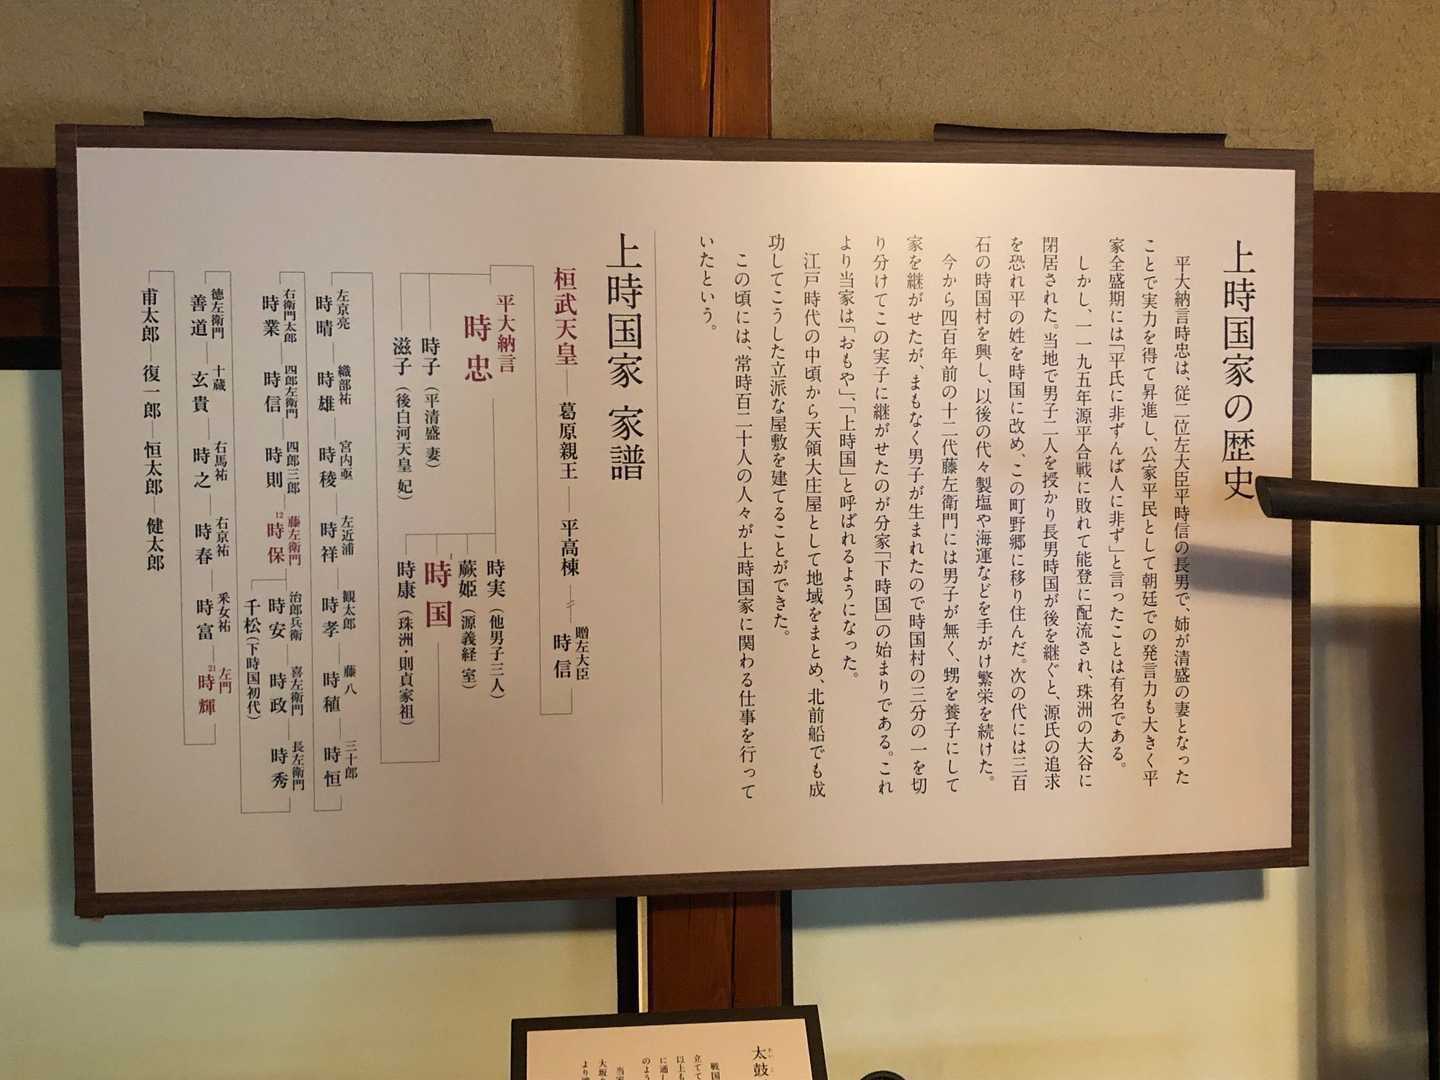 上時国家の歴史
平大納言時忠は、従二位左大臣平時信の長男で、姉が清盛の妻となった
ことで実力を得て昇進し、公家平民として朝廷での発言力も大きく平
家全盛期には「平氏に非ずんば人に非ず」と言ったことは有名である。
しかし、一一九五年源平合戦に敗れて能登に配流され、珠洲の大谷に
閉居された。当地で男子二人を授かり長男時国が後を継ぐと、源氏の追求
を恐れ平の姓を時国に改め、この町野郷に移り住んだ。次の代には三百
石の時国村を興し、以後の代々製塩や海運などを手がけ繁栄を続けた。
今から四百年前の十二代藤左衛門には男子が無く、甥を養子にして
家を継がせたが、まもなく男子が生まれたので時国村の三分の一を切
り分けてこの実子に継がせたのが分家「下時国」の始まりである。これ
より当家は「おもや」、「上時国」と呼ばれるようになった。
江戸時代の中頃から天領大庄屋として地域をまとめ、北前船でも成
功してこうした立派な屋敷を建てることができた。
この頃には、常時百二十人の人々が上時国家に関わる仕事を行って
いたという。
上時国家 家譜
桓武天皇 葛原親王 平高棟 贈左大臣 時信
平大納言 時忠
時子（平清盛 妻）
滋子（後白河天皇 妃）
時実（他男子三人）
蕨姫（源義経 室）
1 時国
時康（珠洲・則貞家祖）
左京亮 時晴 織部祐 時雄 宮内亟 時稜 左近浦 時祥 観太郎 時孝 藤八 時稙 三十郎 時恒
右衛門太郎 時業 四郎左衛門 時信 四郎三郎 時則 藤左衛門 12 時保 治郎兵衛 時安 喜左衛門 時政 長左衛門 時秀
千松（下時国初代）
徳左衛門 善道 十蔵 玄貴 右馬祐 時之 右京祐 時春 釆女祐 時富 左門 21 時輝
甫太郎 復一郎 恒太郎 健太郎
太鼓
戦国
立てて
以上も
に通し
のよう
当家
大坂
より